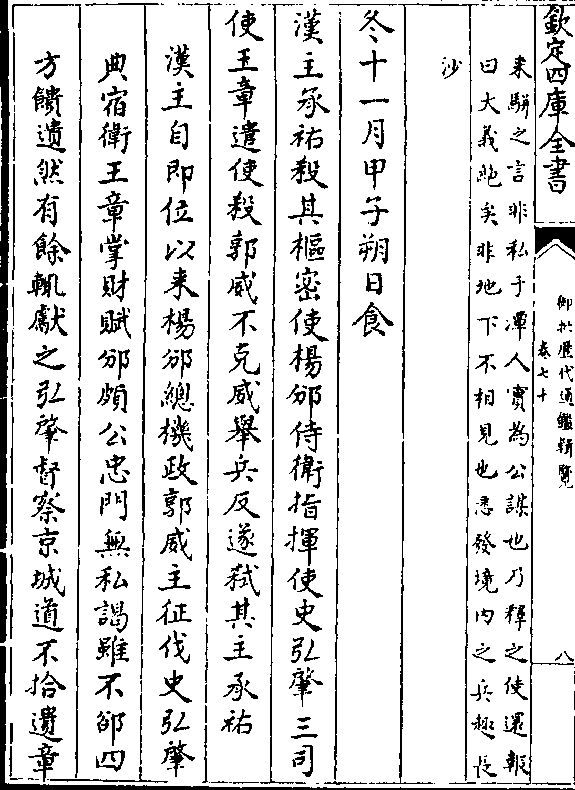 欽定四庫全書
御批歷代通鑑輯覽
卷七十
八
来駢之言非私于渾人實為公謀也乃釋之使還報
曰大義絶矣非地下不相見也悉發境内之兵趣長
沙
冬十一月甲子朔日食
漢主承祐殺其樞密使楊邠侍衛指揮使史弘肇三司
使王章遣使殺郭威不克威舉兵反遂弑其主承祐
漢主自即位以来楊邠總機政郭威主征伐史弘肇
典宿衛王章掌財賦邠頗公忠門無私謁雖不郤四
方饋遺然有餘輒獻之弘肇督察京城道不拾遺章